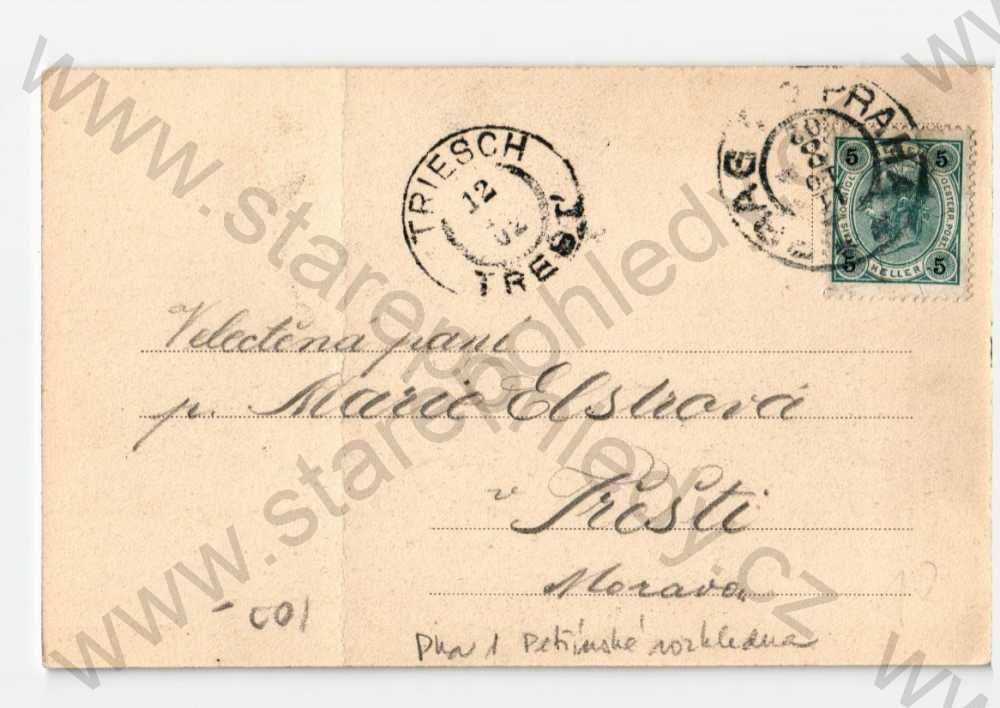 TRIESCH
12
02
TREŠŤ
PRAHA
PRAG
5 5
HELLER
5 5
Velectěná paní
p. Marie Elstrová
v Třešti
Morava
- 601
Pha 1 Petřínské rozhledna
www.starepohledy.cz
www.starepohledy.cz